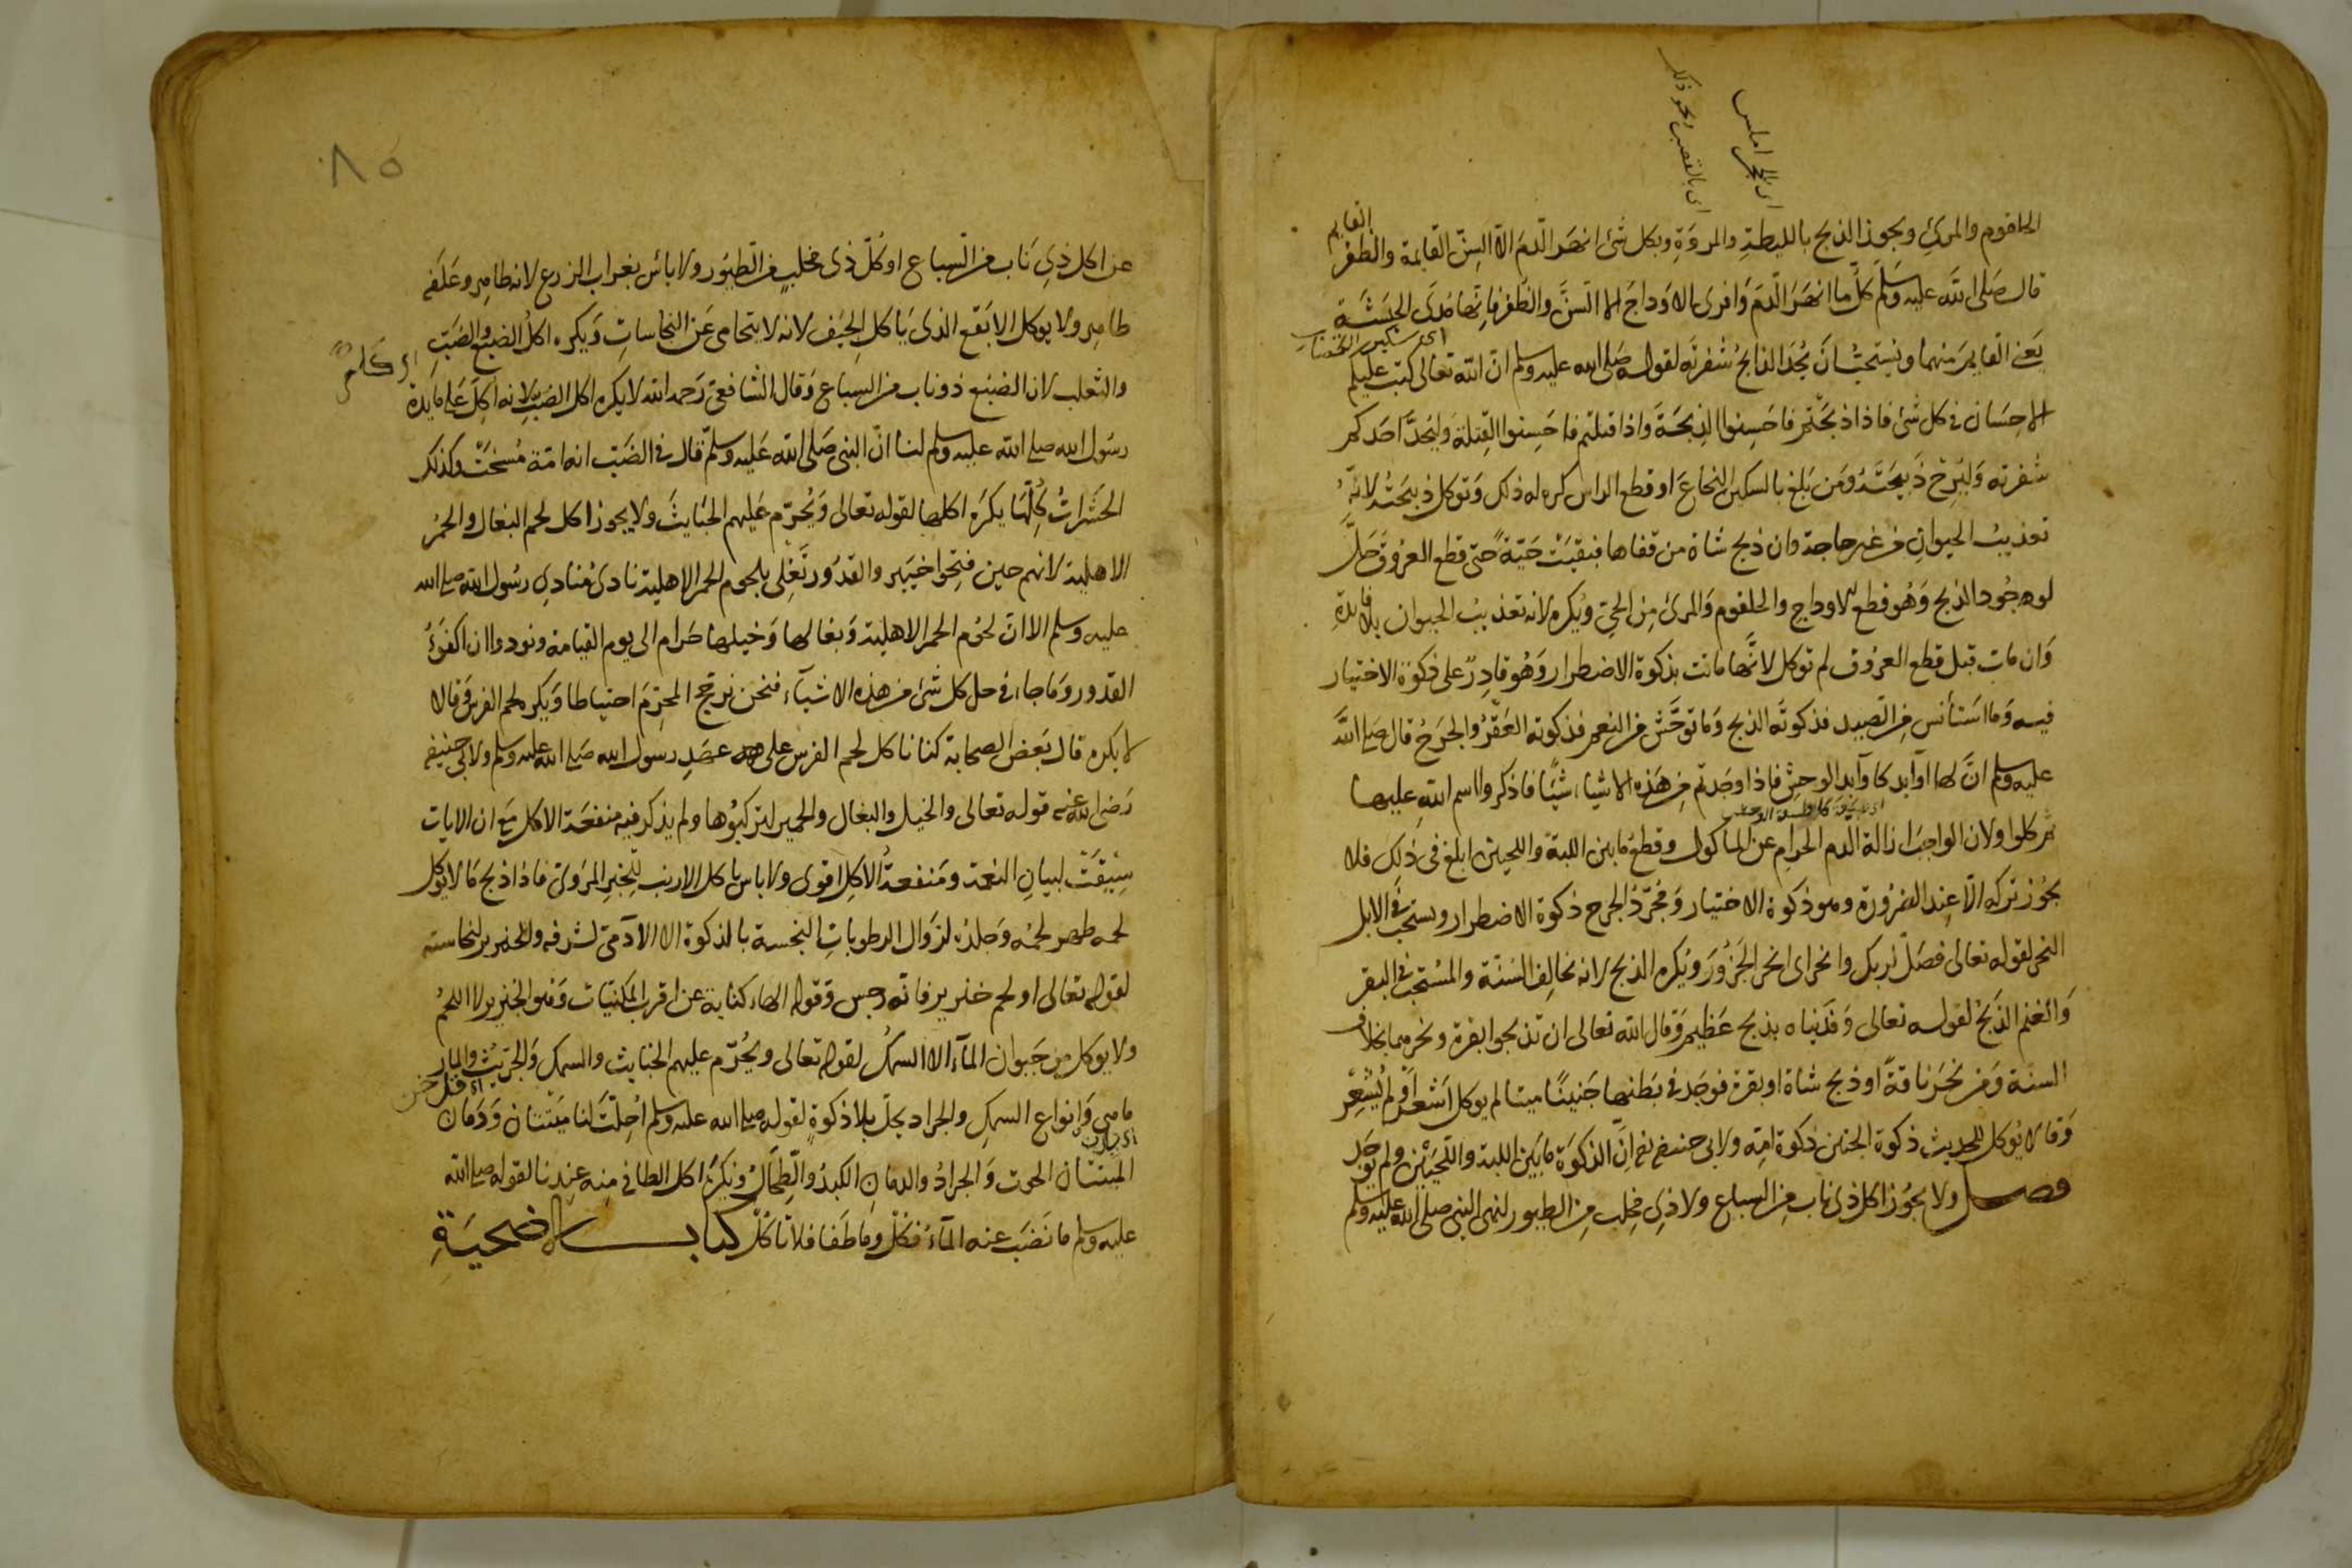 اي بالقصب او نحو ذلك
اي الحجر املس
الحلقوم والمرئ ويجوز الذبح بالليطة والمروة وبكل شئ انهر الدم الا السن القايمة والظفر القايم
قال صلى الله عليه وسلم كل ما انهر الدم وافرى الاوداج الا السن والظفر فانها مدى الحبشة
يعني القايم منهما ويستحب ان يحد الذابح شفرته لقوله صلى الله عليه وسلم ان الله تعالى كتب عليكم
الاحسان في كل شئ فاذا ذبحتم فاحسنوا الذبحة واذا قتلتم فاحسنوا القتلة وليحد احدكم
شفرته وليرح ذبيحته ومن بلغ بالسكين النخاع او قطع الراس كره له ذلك وتوكل ذبيحته لانه
تعذيب الحيوان من غير حاجة وان ذبح شاة من قفاها فبقيت حية حتى قطع العروق حل
لوجود الذبح وهو قطع الاوداج والحلقوم والمرئ من الحي ويكره لانه تعذيب الحيوان بلا فايدة
وان مات قبل قطع العروق لم توكل لانها ماتت بذكوة الاضطرار وهو قادر على ذكوة الاختيار
فيه وما استأنس من الصيد فذكوته الذبح وما توحش من النعم فذكوته العقر والجرح قال صلى الله
عليه وسلم ان لها اوابد كاوابد الوحش فاذا وجدتم من هذه الاشياء شيئا فاذكروا اسم الله عليها
ثم كلوا ولان الواجب ازالة الدم الحرام عن الماكول وقطع ما بين اللبة واللحيين ابلغ في ذلك فلا
يجوز تركه الا عند الضرورة وهو ذكوة الاختيار ومجرد الجرح ذكوة الاضطرار ويستحب في الابل
النحر لقوله تعالى فصل لربك وانحر اي انحر الجزور ويكره الذبح لانه يخالف السنة والمستحب في البقر
والغنم الذبح لقوله تعالى وفديناه بذبح عظيم وقال الله تعالى ان تذبحوا بقرة ونحرهما بخلاف
السنة ومن نحر ناقة او ذبح شاة او بقرة فوجد في بطنها جنينا ميتا لم يوكل اشعر او لم يشعر
وقالا يوكل للحديث ذكوة الجنين ذكوة امه ولابي حنيفة ان الذكوة ما بين اللبة واللحيين ولم يوجد
فصل ولا يجوز اكل ذي ناب من السباع ولا ذي مخلب من الطيور لنهي النبي صلى الله عليه وسلم
٨٥
عن اكل ذي ناب من السباع او كل ذي مخلب من الطيور ولا بأس بغراب الزرع لانه طاهر وعلفه
طاهر ولا يوكل الابقع الذي ياكل الجيف لانه لا يتحامى عن النجاسات ويكره اكل الضبع والضب
والثعلب لان الضبع ذو ناب من السباع وقال الشافعي رحمه الله لا يكره اكل الضب لانه اكل على مايدة
رسول الله صلى الله عليه وسلم لنا ان النبي صلى الله عليه وسلم قال في الضب انه امة مسخت وكذلك
الحشرات كلها يكره اكلها لقوله تعالى ويحرم عليهم الخبايث ولا يجوز اكل لحم البغال والحمر
الاهلية لانهم حين فتحوا خيبر والقدور تغلى بلحوم الحمر الاهلية نادى منادي رسول الله صلى الله
عليه وسلم الا ان لحوم الحمر الاهلية وبغالها وخيلها حرام الى يوم القيامة ونودوا ان اكفؤا
القدور وما جاء في حل كل شئ من هذه الاشياء فنحن نرجح المحرم احتياطا ويكره لحم الفرس وقالا
لا يكره قال بعض الصحابة كنا ناكل لحم الفرس على عهد رسول الله صلى الله عليه وسلم ولابي حنيفة
رضي الله عنه قوله تعالى والخيل والبغال والحمير لتركبوها ولم يذكر فيه منفعة الاكل مع ان الايات
سيقت لبيان النعمة ومنفعة الاكل اقوى ولا باس باكل الارنب للخبر المروى فاذا ذبح ما لا يوكل
لحمه طهر لحمه وجلده لزوال الرطوبات النجسة بالذكوة الا الادمي لشرفه والخنزير لنجاسته
لقوله تعالى او لحم خنزير فانه رجس وقوله الهاء كناية عن اقرب المكنيات وهو الخنزير لا اللحم
ولا يوكل من حيوان الماء الا السمك لقوله تعالى ويحرم عليهم الخبايث والسمك والجريث والمار
ماهي وانواع السمك والجراد يحل بلا ذكوة لقوله صلى الله عليه وسلم احلت لنا ميتتان ودمان
الميتتان الحوت والجراد والدمان الكبد والطحال ويكره اكل الطافي منه عندنا لقوله صلى الله
عليه وسلم ما نضب عنه الماء فكل وما طفا فلا تاكل كتاب الاضحية